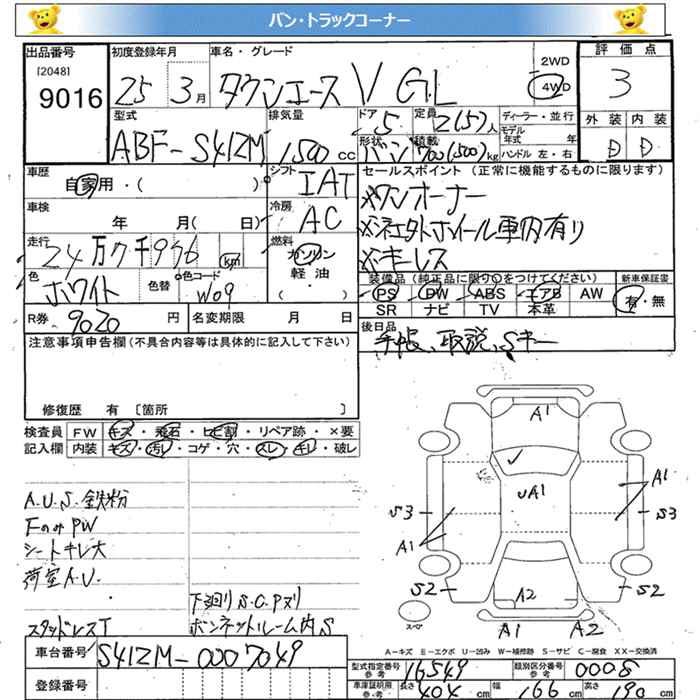 バン・トラックコーナー
出品番号 初度登録年月 車名・グレード 2WD 評価点
[2048] 9016 25 3月 タウンエースV GL 4WD 3
型式 排気量 ドア 定員 ディーラー・並行 外装 内装
ABF-S412M 1,500cc 5 2(5)人 モデル年式 年 D D
形状 バン 積載 700(500)kg ハンドル 左・右
車歴 自家用・( ) シフト IAT セールスポイント (正常に機能するものに限ります)
車検 年 月( 日) 冷房 AC ※ワンオーナー
※社外ホイール車内有り
走行 24万7千976 km 燃料 ガソリン ※キーレス
軽油・( )
色 ホワイト 色替 色コード W09
装備品 (純正品に限り○をつけてください) 新車保証書
PS PW ABS エアB AW 有・無
SR ナビ TV 本革
R券 9020円 名変期限 月 日
後日品 手帳、取説、Sキー
注意事項申告欄(不具合内容等は具体的に記入して下さい)
修復歴 有 〔箇所 〕
検査員 FW キズ・飛石・ヒビ割・リペア跡・×要
記入欄 内装 キズ・汚レ・コゲ・穴・スレ・キレ・破レ
A.U.S.鉄粉
FのみPW
シートキレ大
荷室A.U.
下廻りS.C.Pヌリ
スタッドレスT ボンネットルーム内S
A1
UA1
A1
S3 S3
A1
S2 S2
A2
スペア A1 A2
A－キズ E－エクボ U－凹み W－補修跡 S－サビ C－腐食 XX－交換済
車台番号 S412M-0007049
登録番号
型式指定番号 参考 16549 類別区分番号 参考 0008
車庫証明用 参考 長さ 404cm 幅 166cm 高さ 190cm